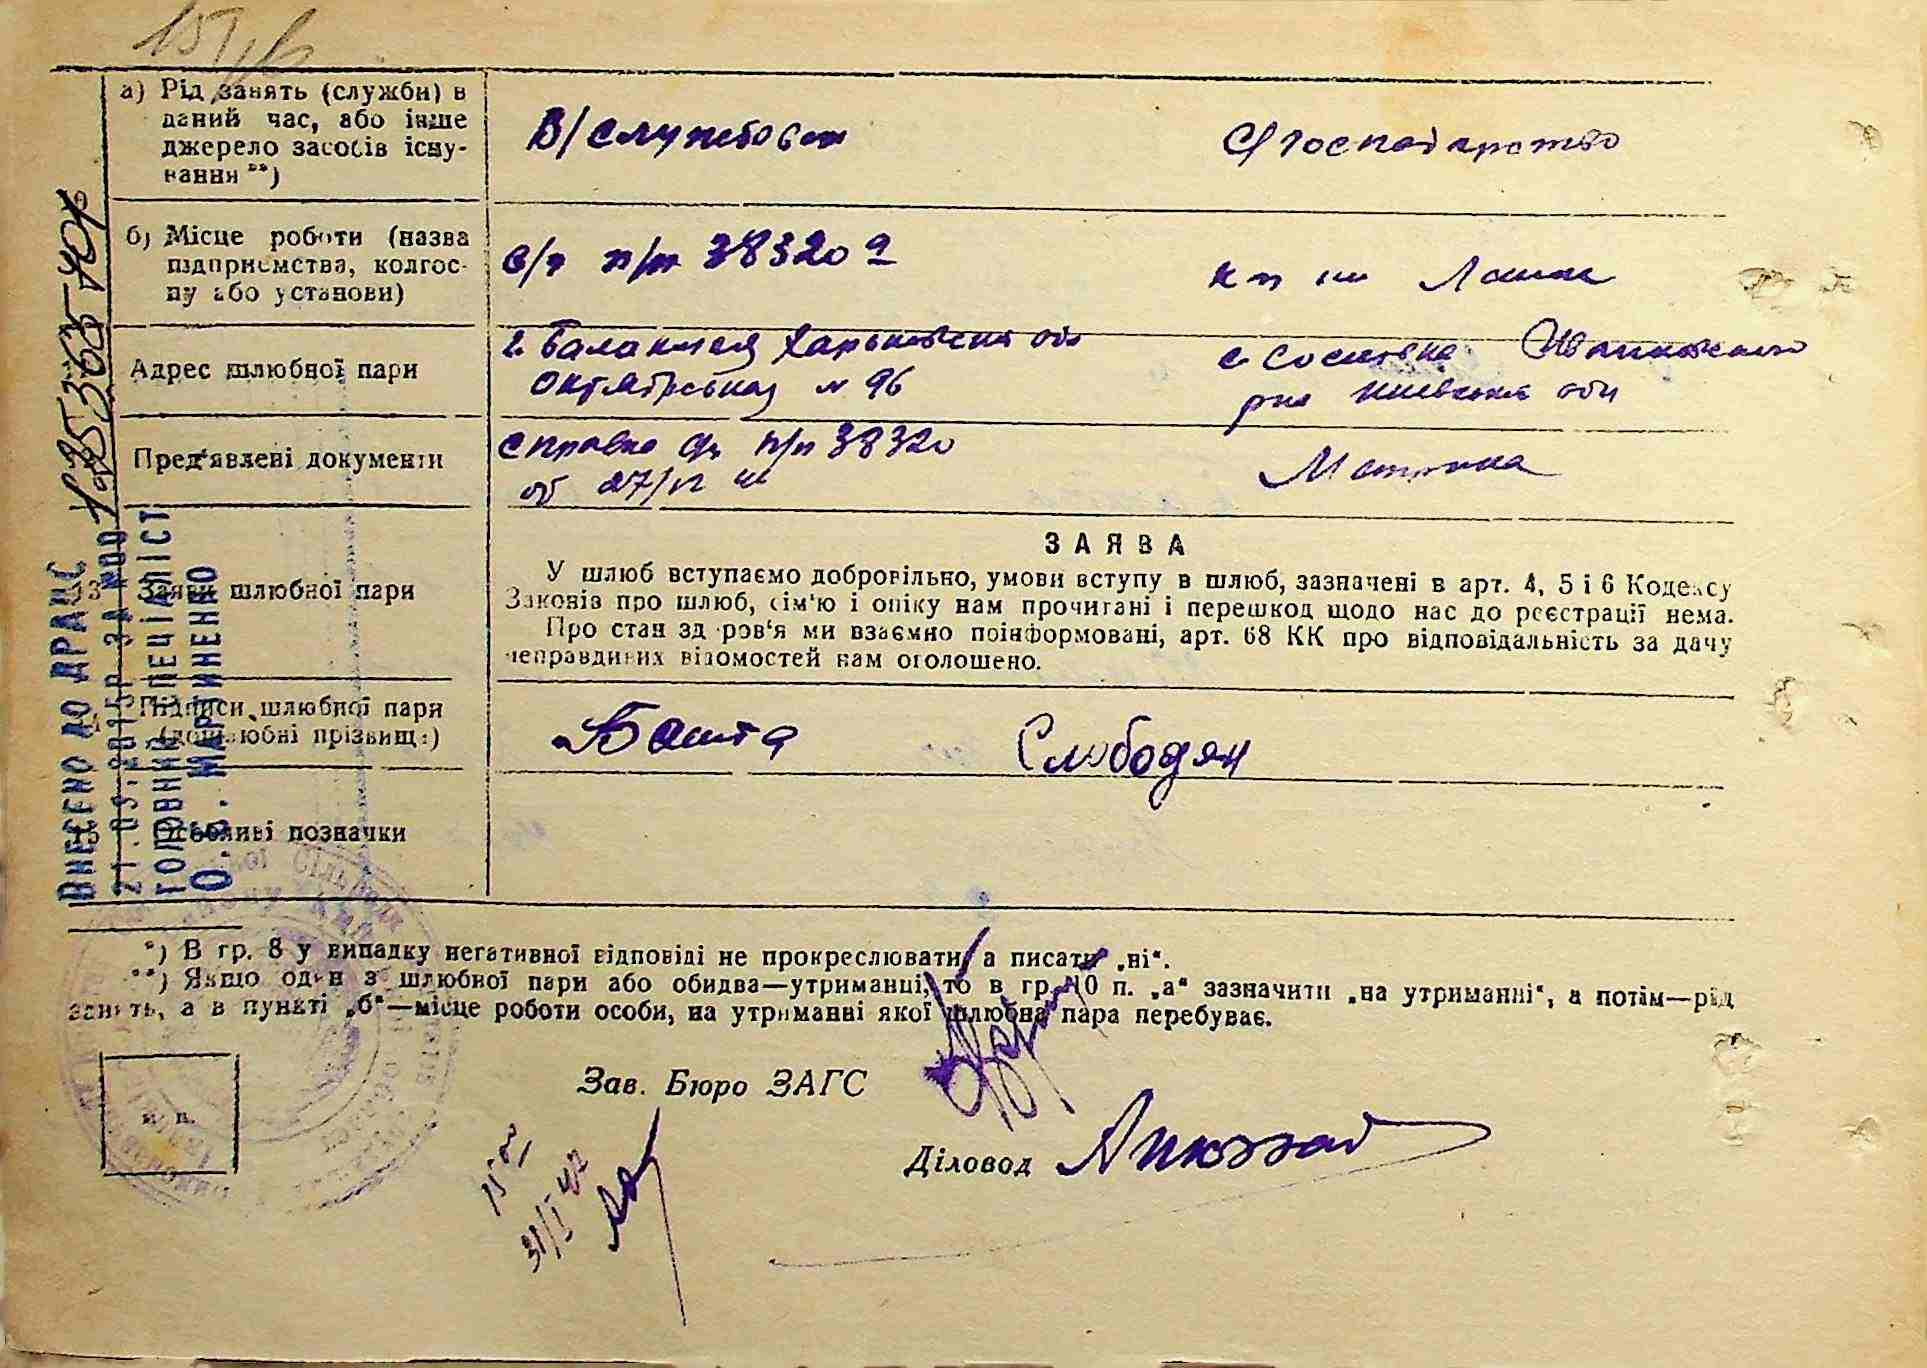 а) Рід занять (служби) в
даний час, або інше
джерело засобів існу-
вання **)
В/службовець
С/господарство
б) Місце роботи (назва
підприємства, колгос-
пу або установи)
в/ч п/п 38320
к п им
Адрес шлюбної пари
г. Балаклея Харьковская обл
Октябрьская № 96
с Сосновка Иванковского
рна Киевская обл
Пред'явлені документи
Справка п/п 38320
от 27/IV
Метрика
13 Заява шлюбної пари
ЗАЯВА
У шлюб вступаємо добровільно, умови вступу в шлюб, зазначені в арт. 4, 5 і 6 Кодексу
Законів про шлюб, сім'ю і опіку нам прочитані і перешкод щодо нас до реєстрації нема.
Про стан здоров'я ми взаємно поінформовані, арт. 68 КК про відповідальність за дачу
неправдивих відомостей нам оголошено.
Підписи шлюбної пари
(дошлюбні прізвища)
Башта
Слободян
15 Особливі позначки
ВНЕСЕНО ДО ДРАЦС
21.09.2015Р ЗА №00
ГОЛОВНИЙ СПЕЦІАЛІСТ
О.В. МАРТИНЕНКО
*) В гр. 8 у випадку негативної відповіді не прокреслювати, а писати „ні“.
**) Якщо один з шлюбної пари або обидва—утриманці, то в гр. 10 п. „а“ зазначити „на утриманні“, а потім—рід
занять, а в пункті „б“—місце роботи особи, на утриманні якої шлюбна пара перебуває.
м. п.
Зав. Бюро ЗАГС
Діловод